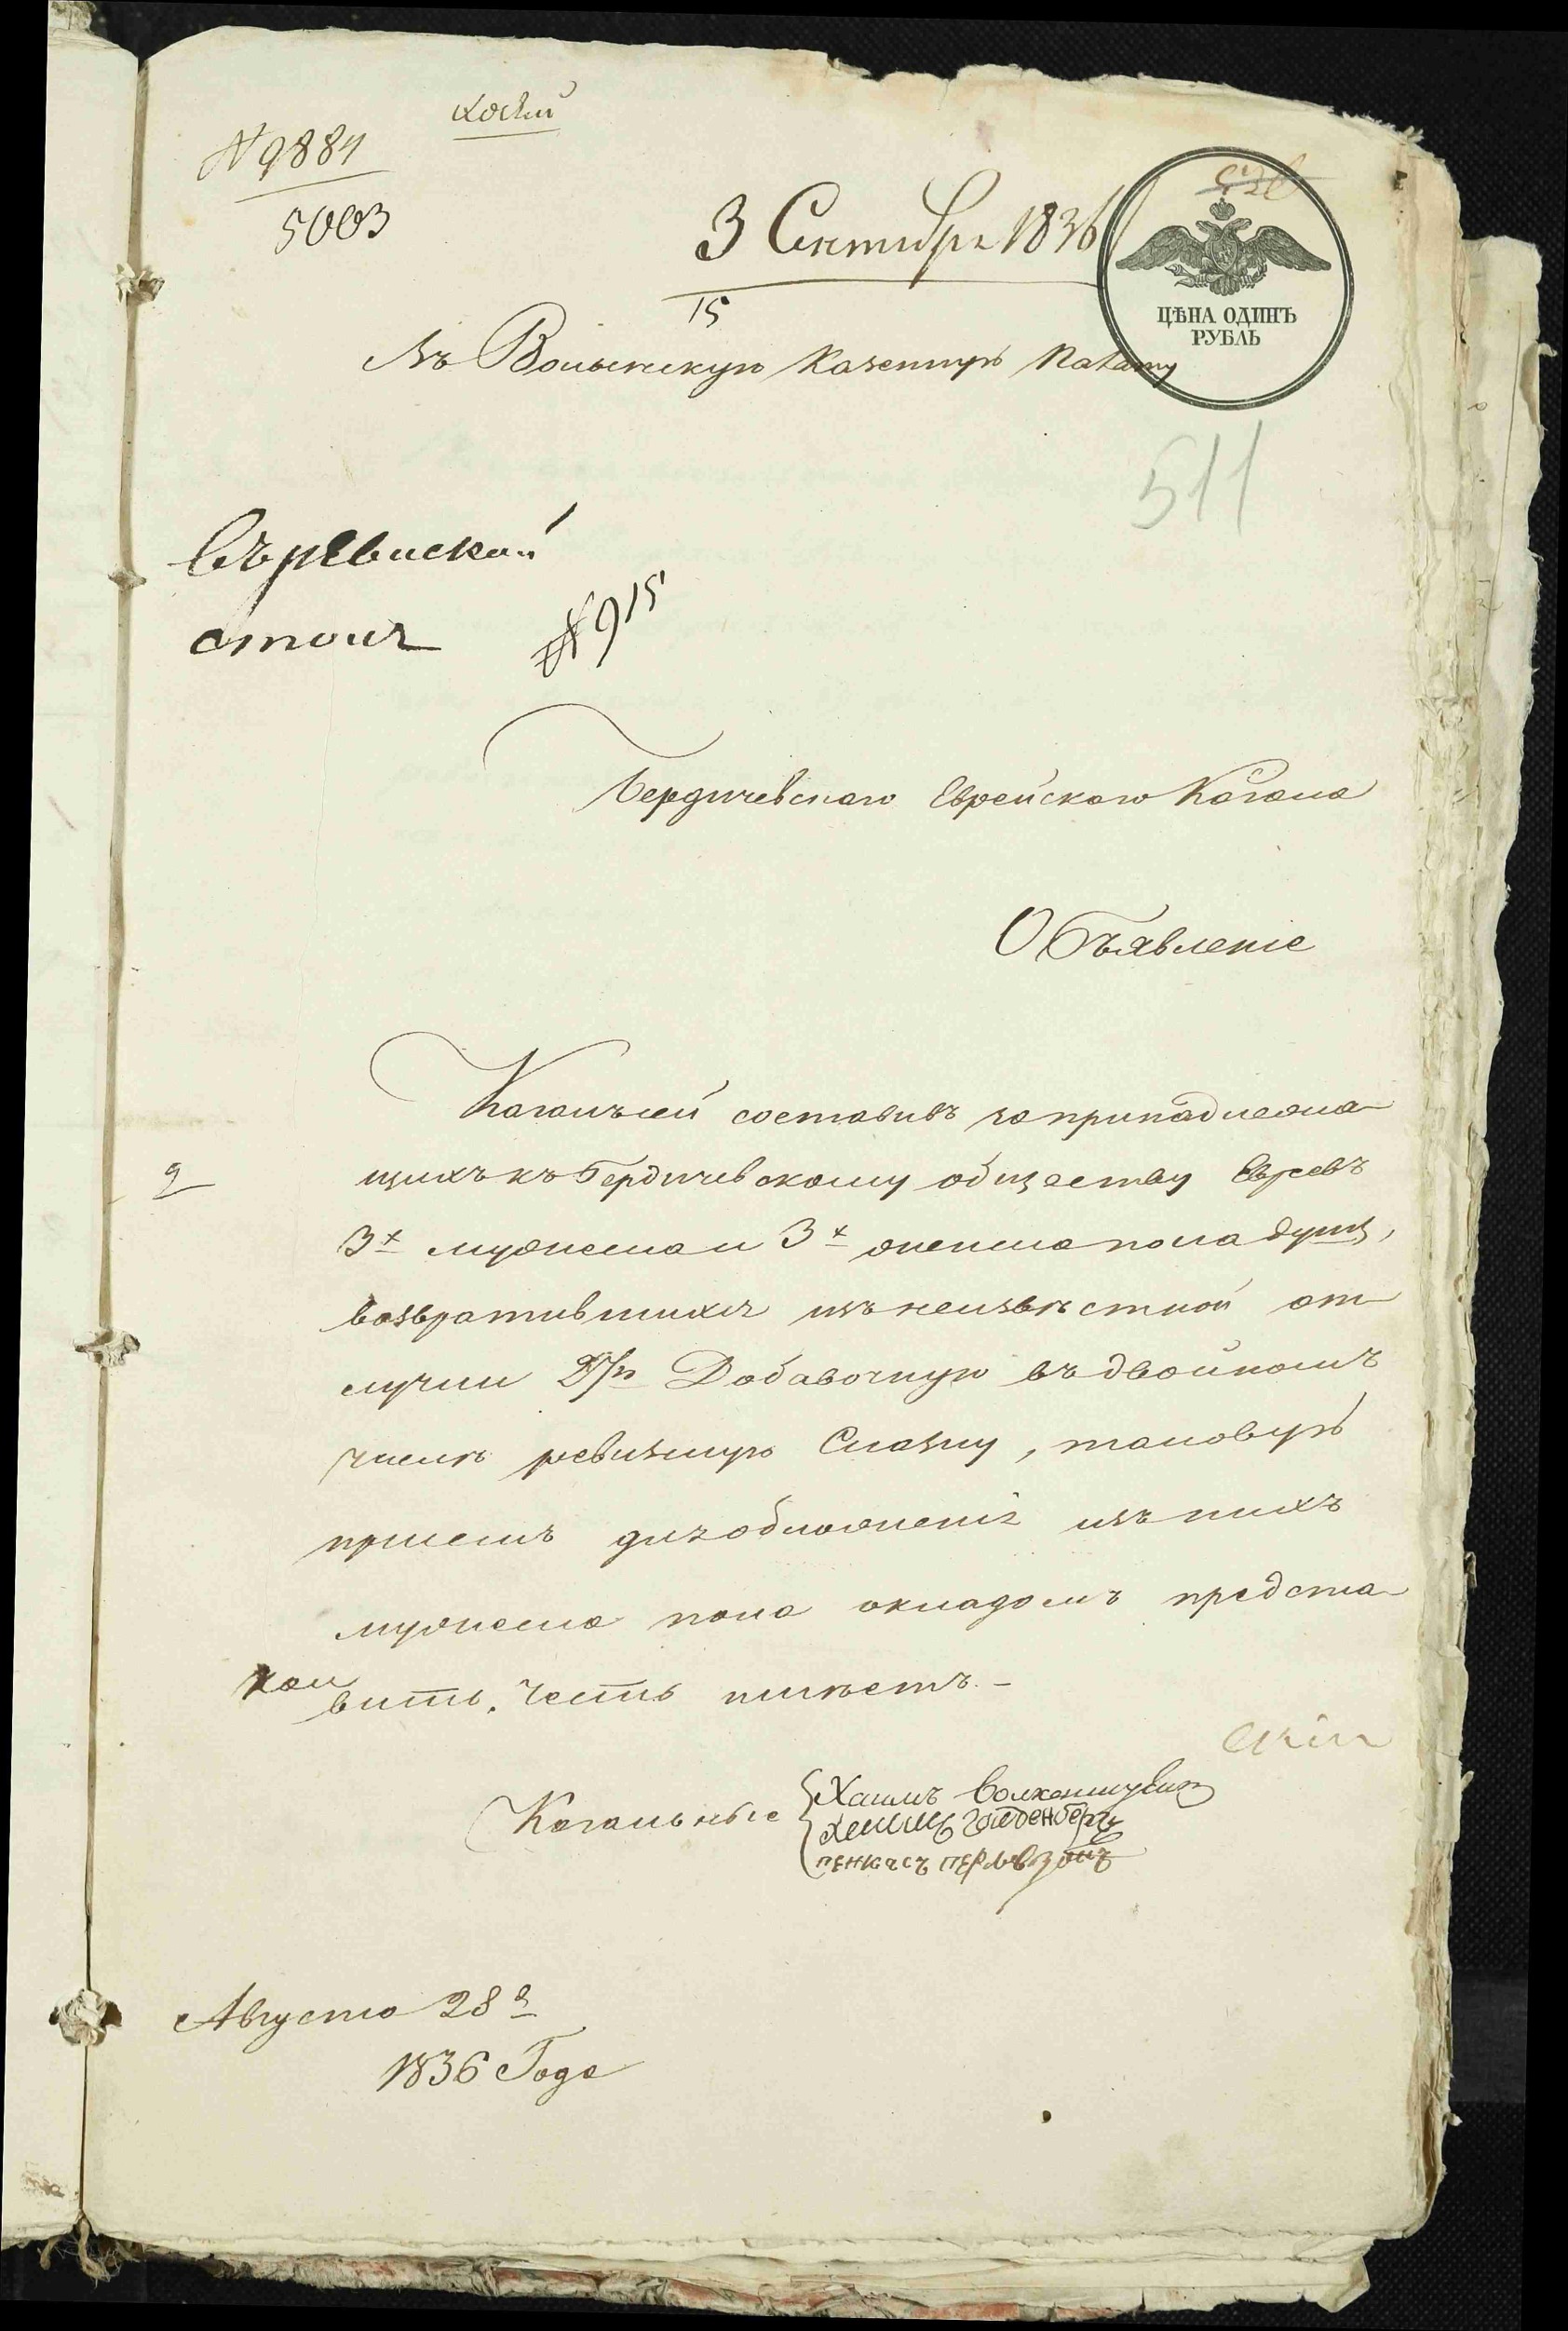 № 9884
5003
3 Сентября 1836
15
ЦѢНА ОДИНЪ
РУБЛЬ
Въ Волынскую Казенную Палату
511
въ ревискай
столъ
№ 915
Бердичевскаго Еврейскаго Кагала
Объявленіе
Кагалъ сей составивъ о принадлежа
щихъ къ Бердичевскому обществу Евреевъ
2
3х мужеска и 3х женска пола душъ,
возвратившихся изъ неизвѣстной от
лучки Добавочную въ двойномъ
числѣ ревизкую Сказку, таковую
при семъ для обложенія изъ нихъ
мужеска пола окладомъ предста
вить, честь имѣетъ. –
Кагальные
Хаимъ
Гольденберъ
пенкасъ перльвзонъ
Августа 28 д
1836 Года